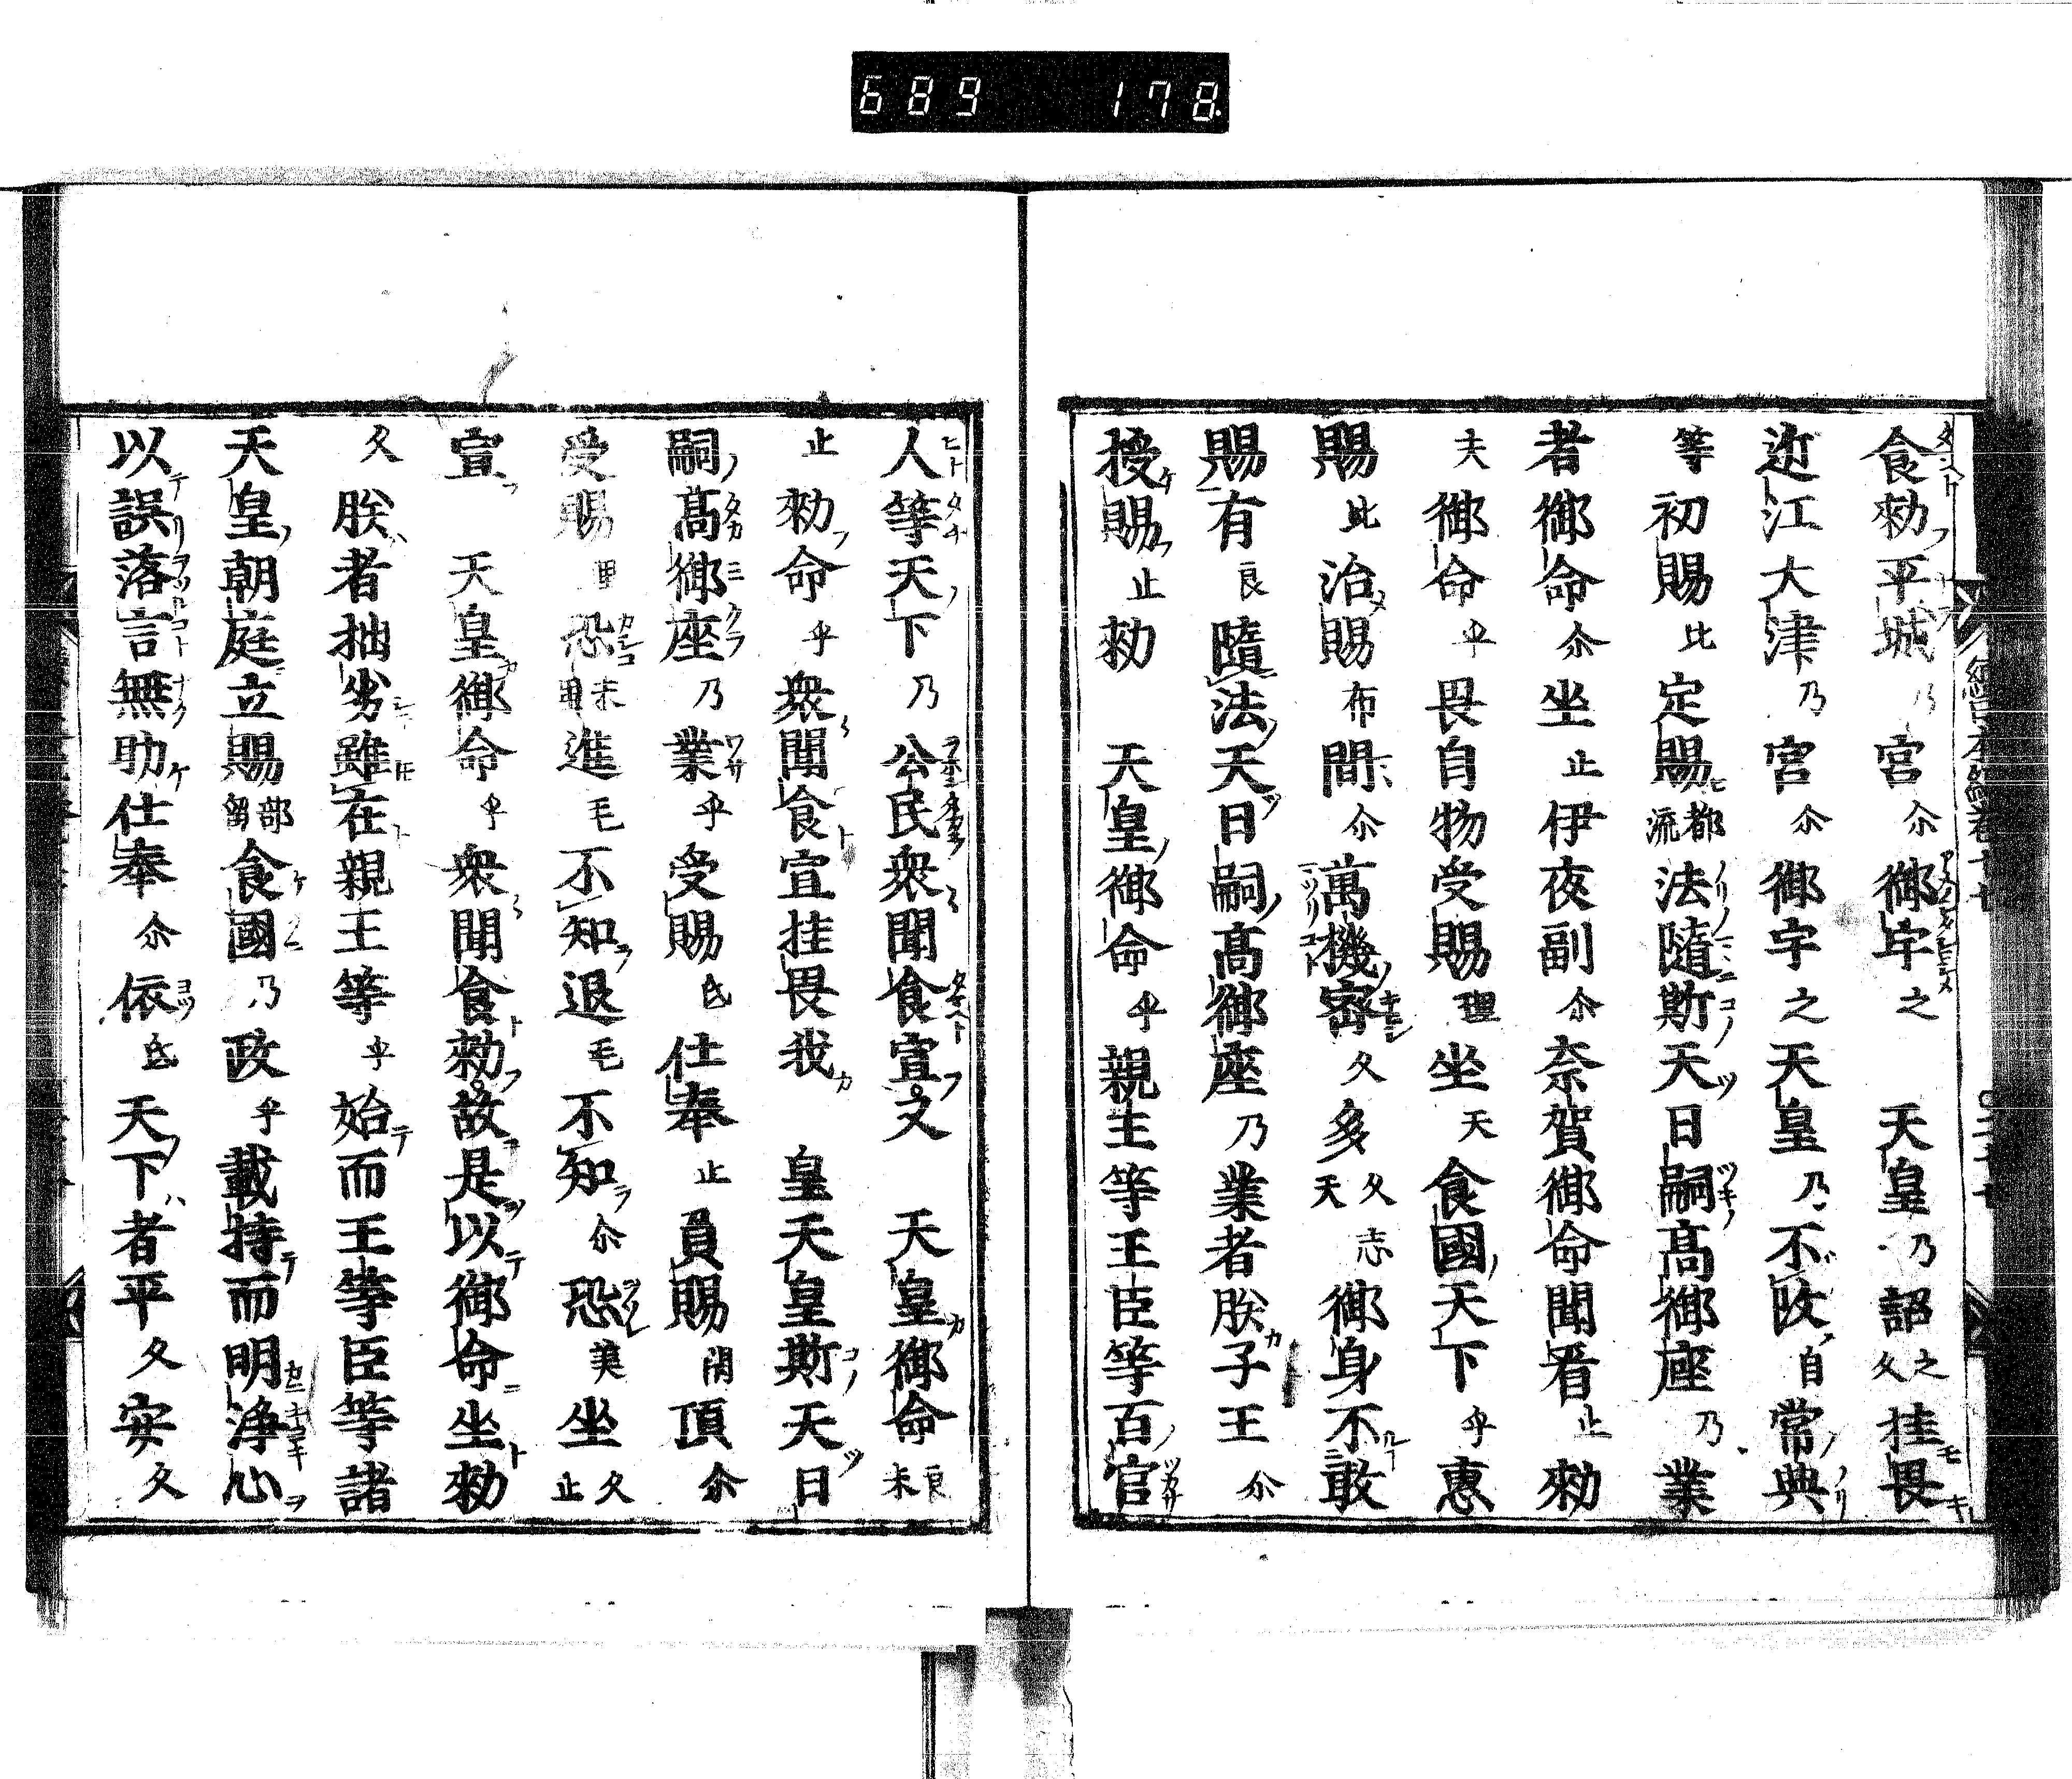 689 178
食勅平城乃宮尓御宇之 天皇乃詔之久挂畏
近江大津乃宮尓御宇之天皇乃不改自常典
等初賜比定賜都流法隨斯天日嗣高御座乃業
者御命尓坐止伊夜副尓奈賀御命聞看止勅
夫御命乎畏自物受賜理坐天食國天下乎惠
賜比治賜布間尓萬機密久多久天志御身不敢
賜有良隨法天日嗣高御座乃業者朕子王尓
授賜止勅 天皇御命乎親王等王臣等百官
人等天下乃公民衆聞食宣又 天皇御命良末
止勅命乎衆聞食宣挂畏我 皇天皇斯天日
嗣高御座乃業乎受賜弖仕奉止負賜閇頂尓
受賜理恐末理進毛不知退毛不知尓恐美坐久止
宣 天皇御命乎衆聞食勅故是以御命坐勅
久朕者拙劣雖在親王等乎始而王等臣等諸
天皇朝庭立賜部留食國乃政乎戴持而明淨心
以誤落言無助仕奉尓依弖天下者平久安久